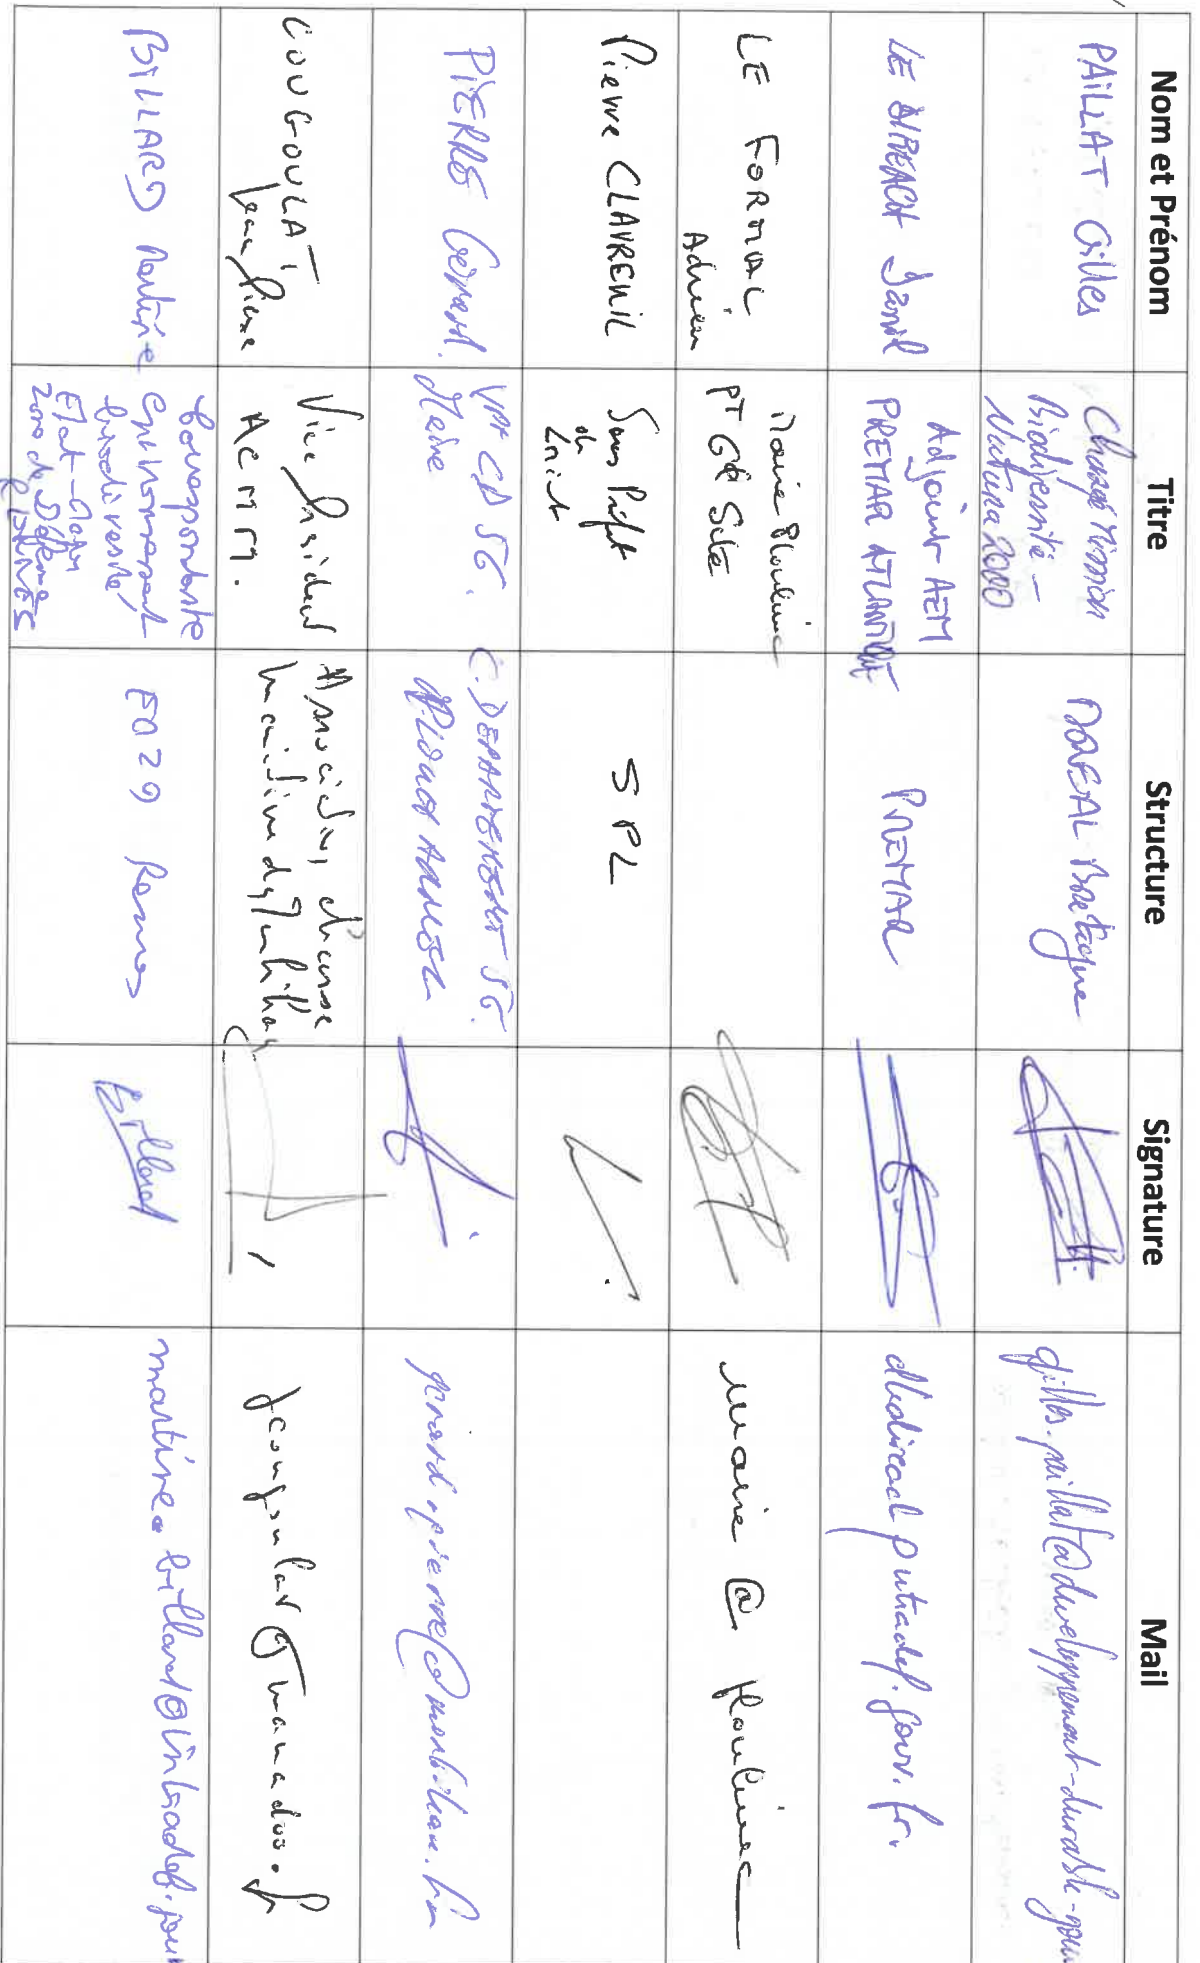 Nom et Prénom Titre Structure Signature Mail
PAILLAT Gilles
Chargé Mission
Biodiversité -
Natura 2000
DREAL Bretagne
gilles.paillat@developpement-durable-gouv
Daniel
Adjoint AEM
PREMAR ATLANTIQUE
PREMAR
LE FORMAL
Adrien
Mairie Plouhinec
PT GR Site
maire @ Plouhinec
Pierre CLAVREUIL
Sous Préfet
de
Lorient
SPL
PIERRE Gérard.
VP CD 56.
Maire
C. DEPARTEMENT 56.
gerard.pierre@morbihan.fr
COUGOULAT
Jean Pierre
Vice Président
ACMM.
Association chasse
maritime du Morbihan
BILLARD Martine
Correspondante
Environnement
biodiversité
Etat-Major
Zone de Défense
RENNES
Rennes
Billard
martine.billard@intradef.gouv